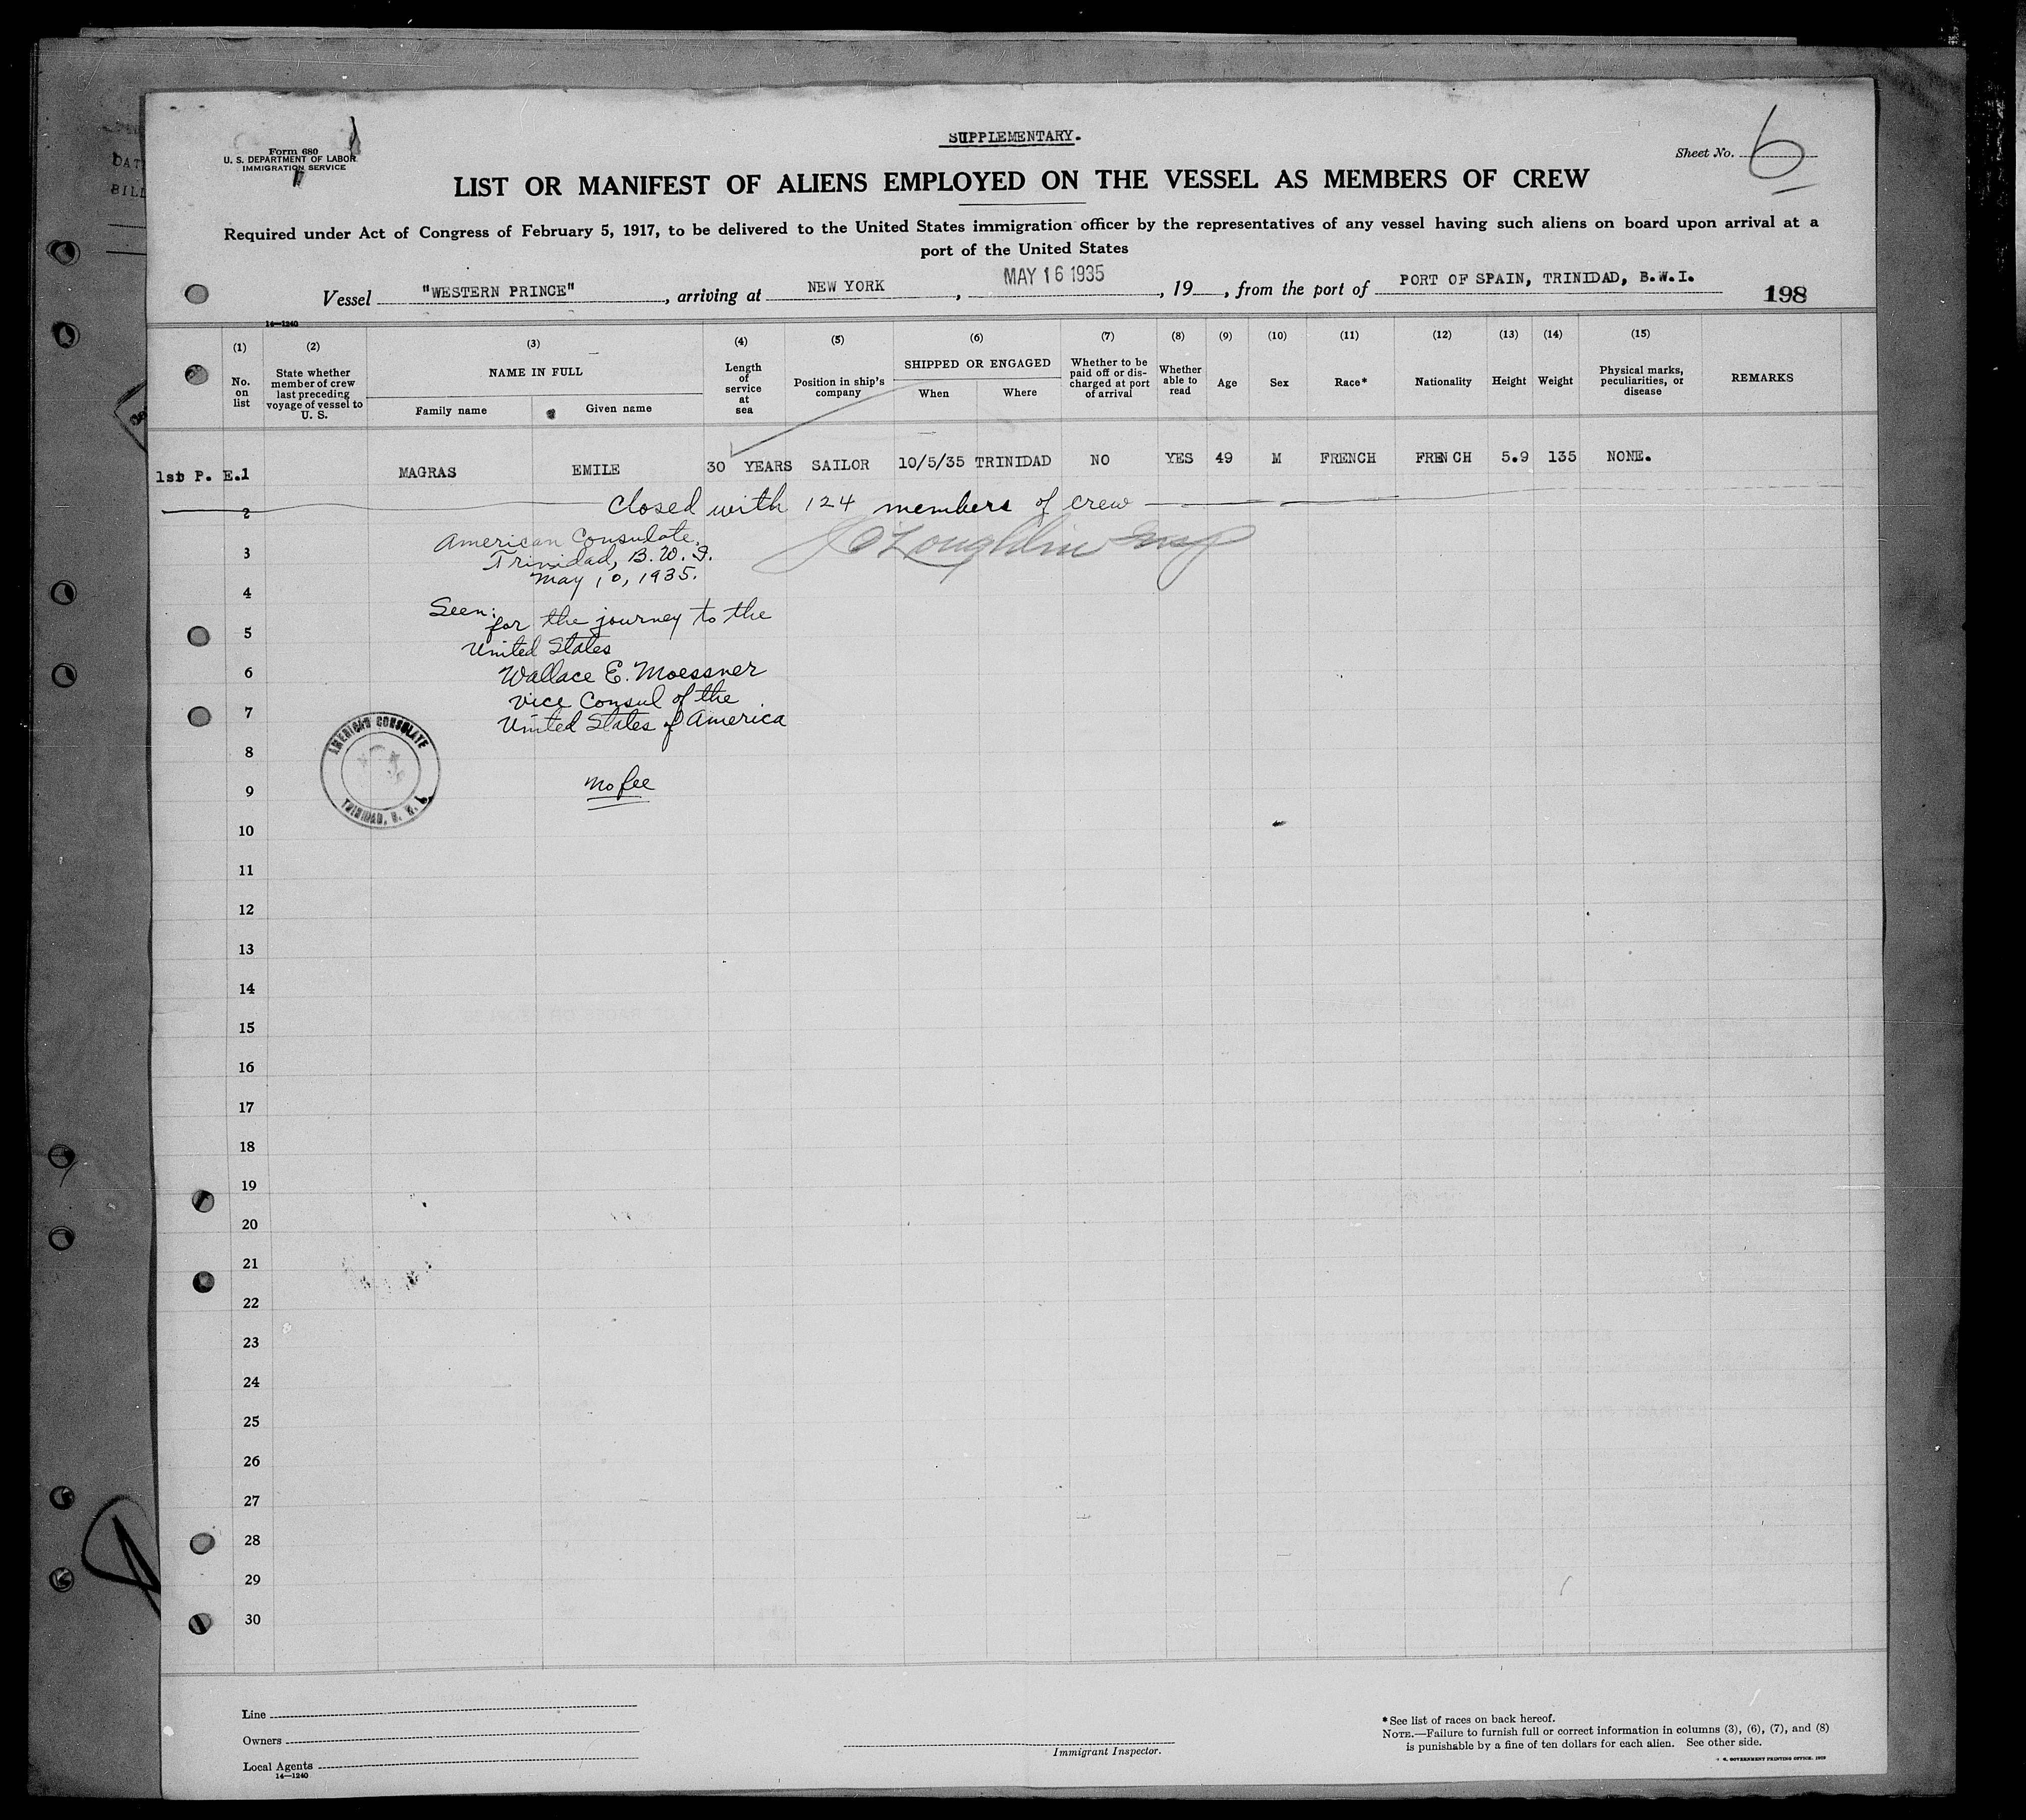 SUPPLEMENTARY.
Form 680
U. S. DEPARTMENT OF LABOR
IMMIGRATION SERVICE
Sheet No. 6
LIST OR MANIFEST OF ALIENS EMPLOYED ON THE VESSEL AS MEMBERS OF CREW
Required under Act of Congress of February 5, 1917, to be delivered to the United States immigration officer by the representatives of any vessel having such aliens on board upon arrival at a
port of the United States
Vessel "WESTERN PRINCE", arriving at NEW YORK, MAY 16 1935, 19, from the port of PORT OF SPAIN, TRINIDAD, B.W.I.
198
14—1240
(1) (2) (3) (4) (5) (6) (7) (8) (9) (10) (11) (12) (13) (14) (15)
No. on list
State whether member of crew last preceding voyage of vessel to U. S.
NAME IN FULL
Family name
Given name
Length of service at sea
Position in ship's company
SHIPPED OR ENGAGED
When
Where
Whether to be paid off or discharged at port of arrival
Whether able to read
Age
Sex
Race*
Nationality
Height
Weight
Physical marks, peculiarities, or disease
REMARKS
1st P. E.1 MAGRAS EMILE 30 YEARS SAILOR 10/5/35 TRINIDAD NO YES 49 M FRENCH FRENCH 5.9 135 NONE.
Closed with 124 members of crew
2
American Consulate,
3
Trinidad, B.W.I.
May 10, 1935.
4
Seen:
for the journey to the
5
United States
6
Wallace E. Moessner
Vice Consul of the
7
United States of America
AMERICAN CONSULATE
TRINIDAD, B. W. I.
8
No fee
9
10
11
12
13
14
15
16
17
18
19
20
21
22
23
24
25
26
27
28
29
30
Line
Owners
Local Agents
14—1240
Immigrant Inspector.
*See list of races on back hereof.
NOTE.—Failure to furnish full or correct information in columns (3), (6), (7), and (8)
is punishable by a fine of ten dollars for each alien. See other side.
GOVERNMENT PRINTING OFFICE